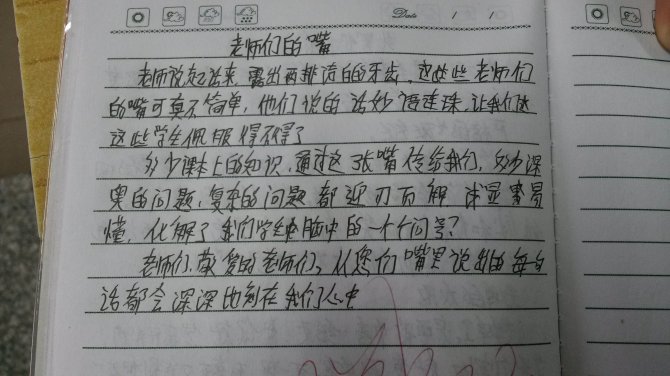 Date / /
老师们的嘴
老师说起话来,露出两排洁白的牙齿。这些老师们
的嘴可真不简单,他们说的话妙语连珠,让我们
这些学生佩服得不得了
多少课本上的知识,通过这张嘴传给我们,多少深
奥的问题,复杂的问题都迎刃而解 浅显易
懂,化解了我们学生脑中的一个个问号?
老师们,敬爱的老师们,从您们嘴里说出的每句
话都会深深地刻在我们心中